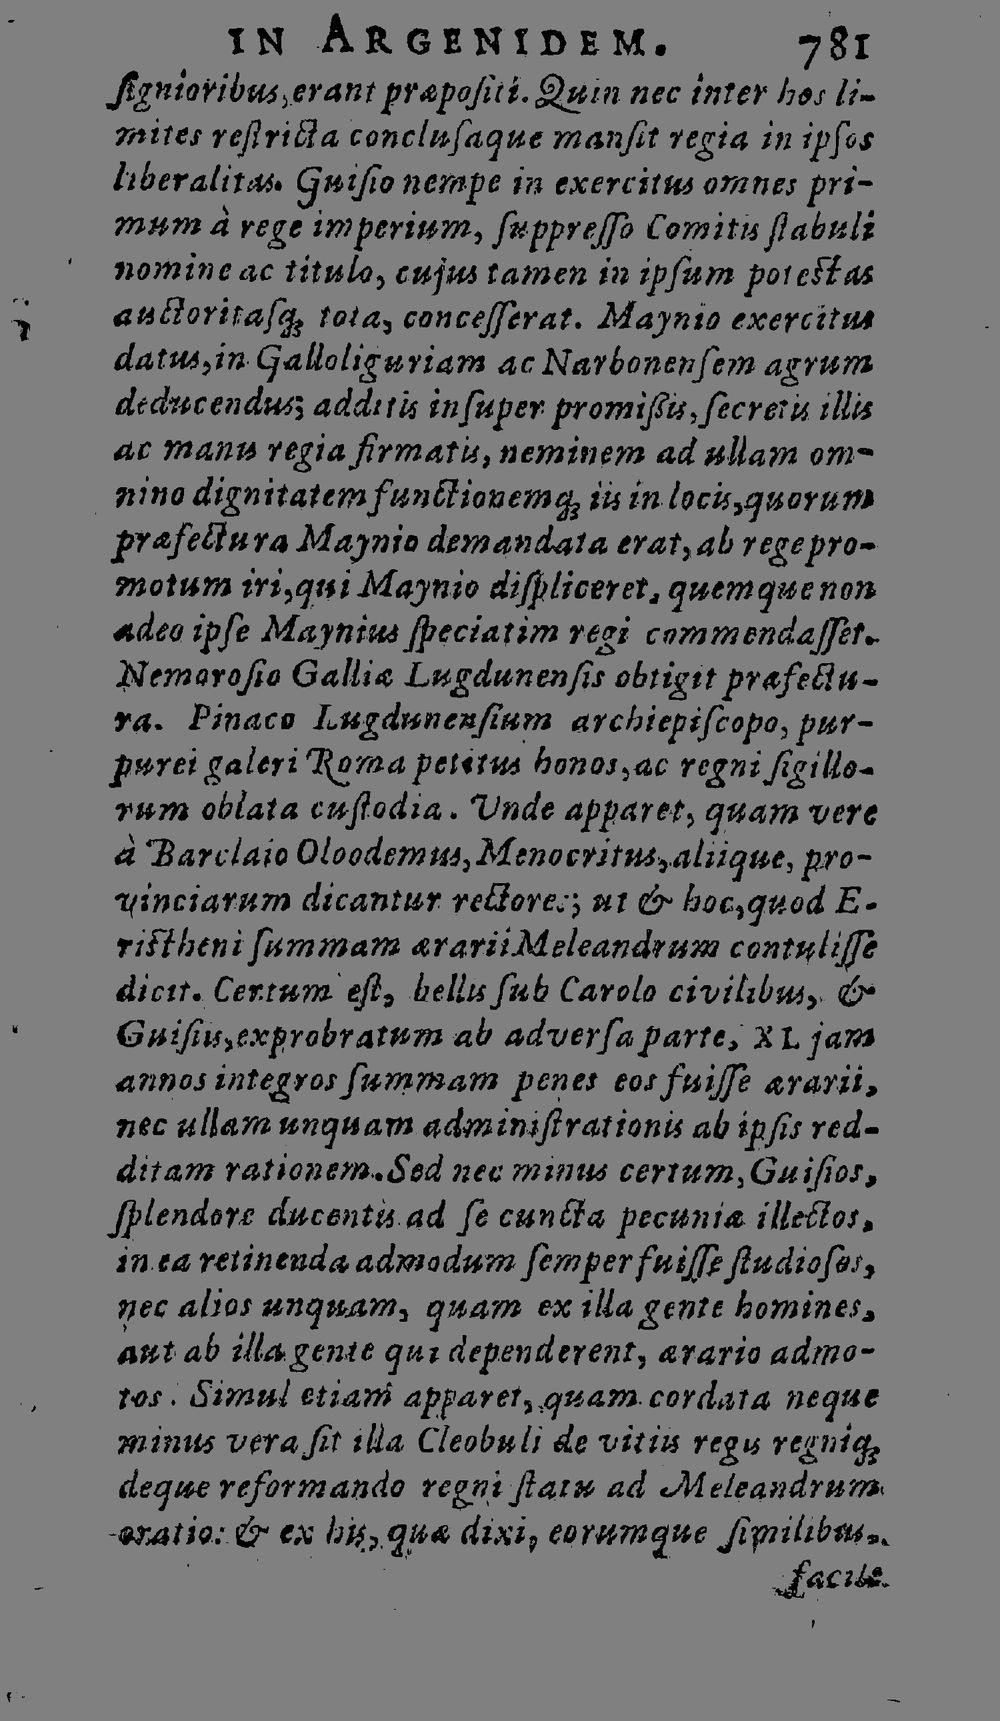 IN ARGENIDEM. 781
ſignioribus, erant præpoſiti. Quin nec inter hos li-
mites reſtricta concluſaque manſit regia in ipſos
liberalitas. Guiſio nempe in exercitus omnes pri-
mum à rege imperium, ſuppreſſo Comitis ſtabuli
nomine ac titulo, cujus tamen in ipſum poteſtas
auctoritaſq; tota, conceſſerat. Maynio exercitus
datus, in Galloliguriam ac Narbonenſem agrum
deducendus; additis inſuper promißis, ſecretis illis
ac manu regia firmatis, neminem ad ullam om-
nino dignitatem functionemq; iis in locis, quorum
præfectura Maynio demandata erat, ab rege pro-
motum iri, qui Maynio diſpliceret, quemque non
adeo ipſe Maynius ſpeciatim regi commendaſſet.
Nemoroſio Galliæ Lugdunenſis obtigit præfectu-
ra. Pinaco Lugdunenſium archiepiſcopo, pur-
purei galeri Roma petitus honos, ac regni ſigillo-
rum oblata cuſtodia. Unde apparet, quam vere
à Barclaio Oloodemus, Menocritus, aliique, pro-
vinciarum dicantur rectores; ut & hoc, quod E-
riſtheni ſummam ærarii Meleandrum contuliſſe
dicit. Certum eſt, bellis ſub Carolo civilibus, &
Guiſiis, exprobratum ab adverſa parte, XL jam
annos integros ſummam penes eos fuiſſe ærarii,
nec ullam unquam adminiſtrationis ab ipſis red-
ditam rationem. Sed nec minus certum, Guiſios,
ſplendore ducentis ad ſe cuncta pecuniæ illectos,
in ea retinenda admodum ſemper fuiſſe ſtudioſos,
nec alios unquam, quam ex illa gente homines,
aut ab illa gente qui dependerent, ærario admo-
tos. Simul etiam apparet, quam cordata neque
minus vera ſit illa Cleobuli de vitiis regis regniq;
deque reformando regni ſtatu ad Meleandrum
oratio: & ex his, quæ dixi, eorumque ſimilibus,
facile